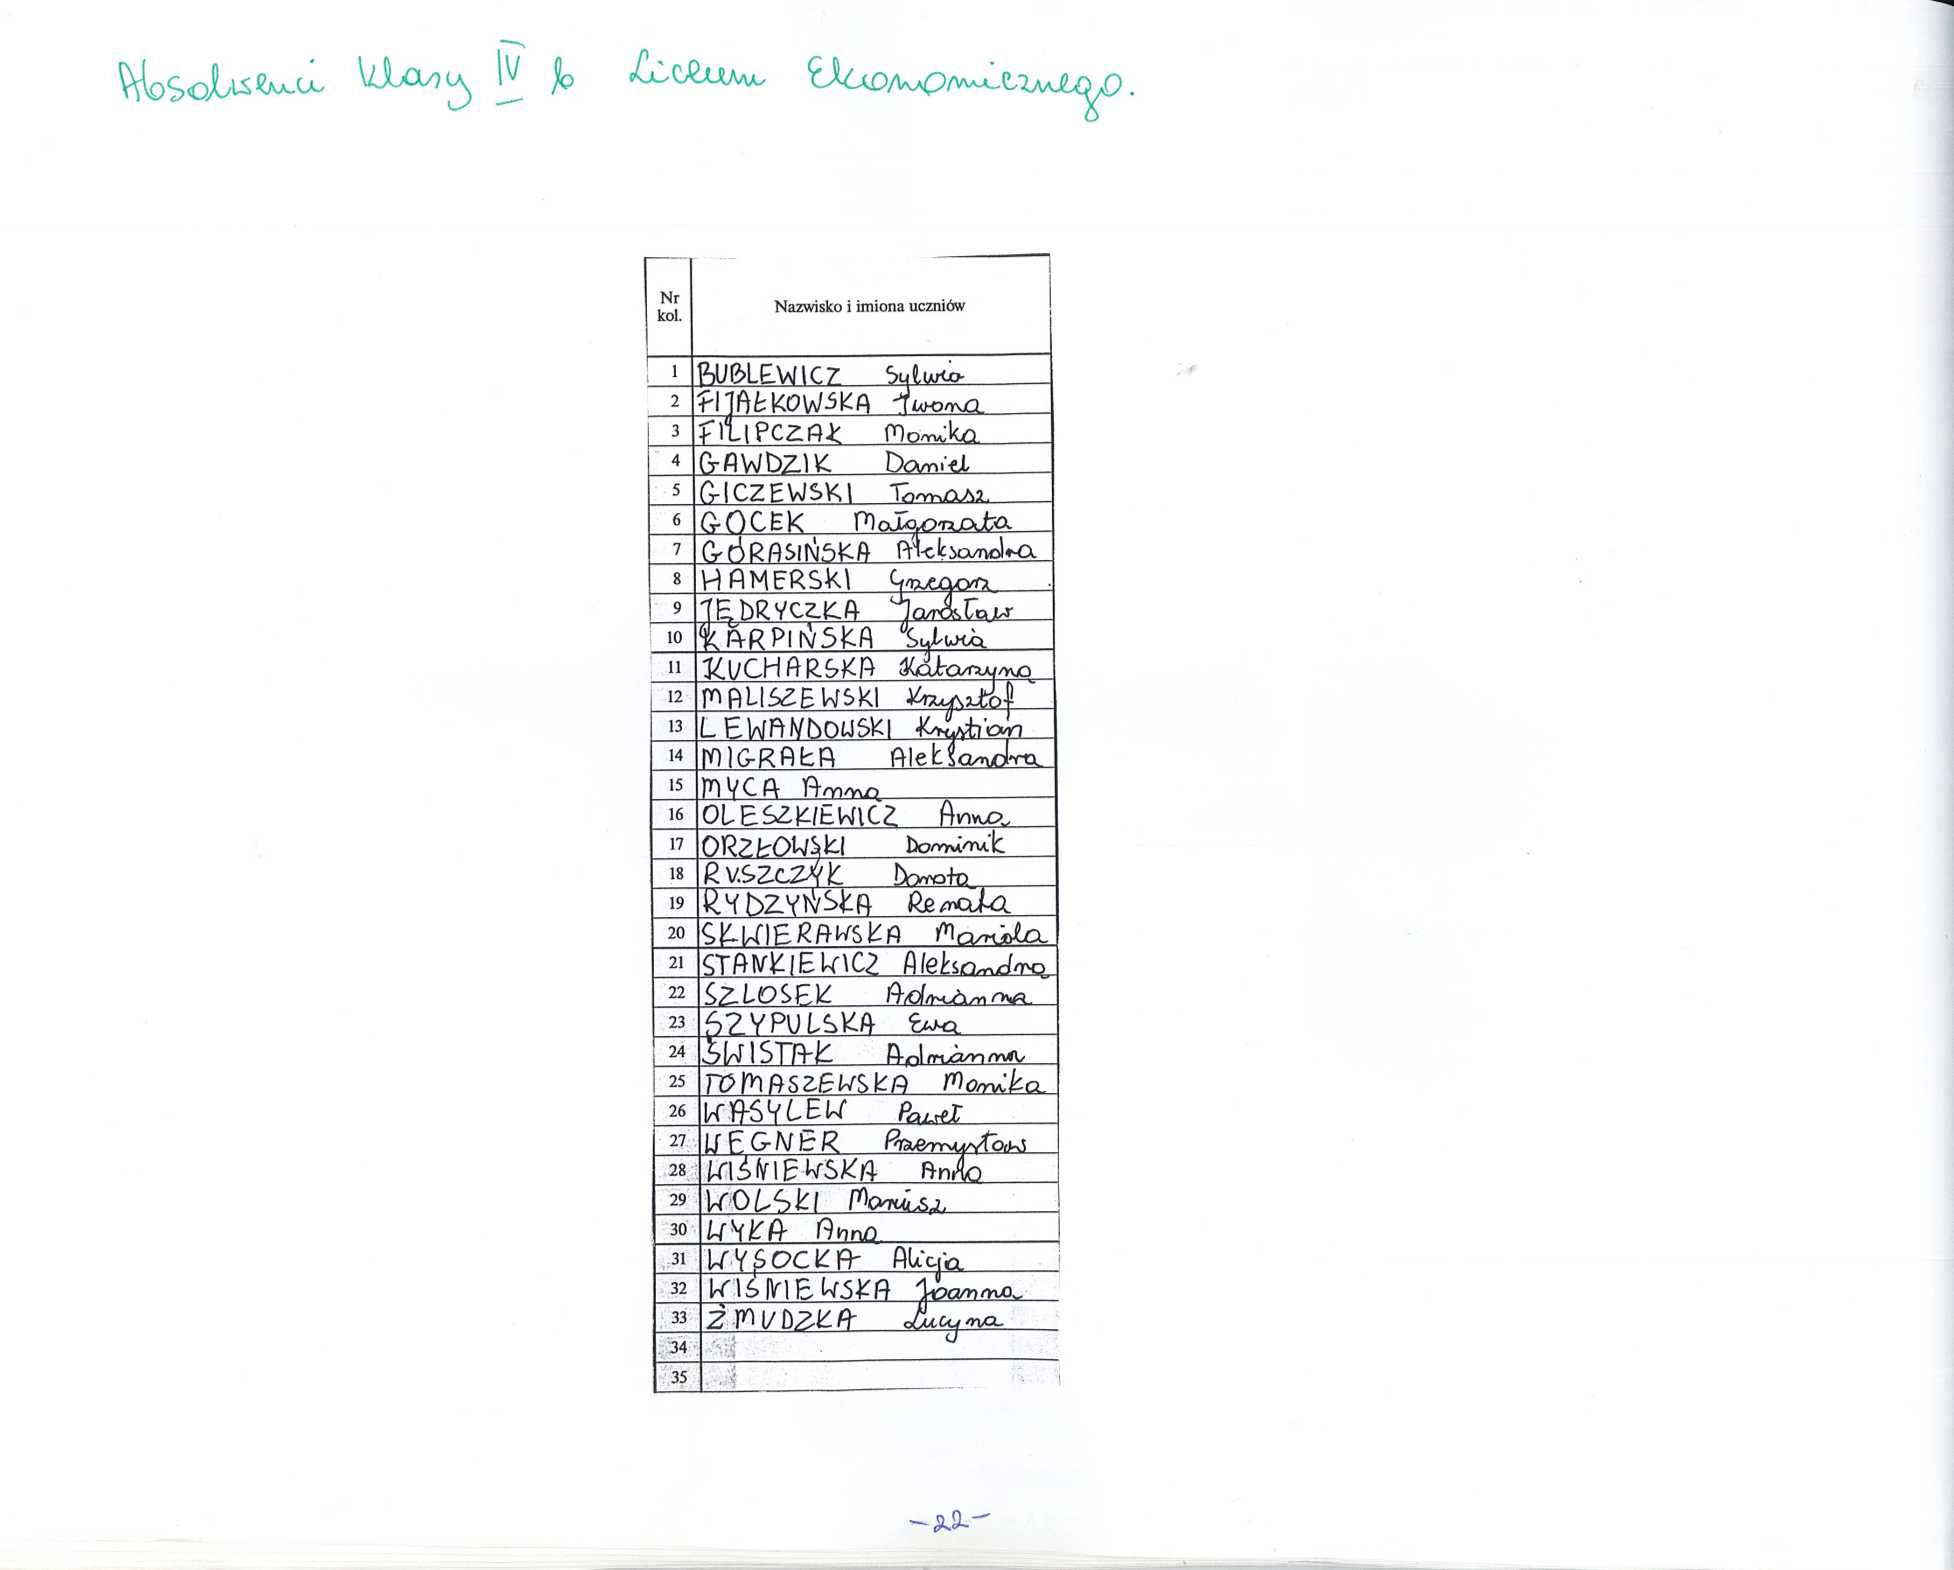 Absolwenci klasy IV b Liceum Ekonomicznego.
Nr kol. Nazwisko i imiona uczniów
1 BUBLEWICZ Sylwia
2 FIJAŁKOWSKA Iwona
3 FILIPCZAK Monika
4 GAWDZIK Daniel
5 GICZEWSKI Tomasz
6 GOCEK Małgorzata
7 GÓRASIŃSKA Aleksandra
8 HAMERSKI Grzegorz
9 JĘDRYCZKA Jarosław
10 KARPIŃSKA Sylwia
11 KUCHARSKA Katarzyna
12 MALISZEWSKI Krzysztof
13 LEWANDOWSKI Krystian
14 MIGRAŁA Aleksandra
15 MYCA Anna
16 OLESZKIEWICZ Anna
17 ORZŁOWSKI Dominik
18 RUSZCZYK Danota
19 RYDZYŃSKA Renata
20 SKWIERAWSKA Mariola
21 STANKIEWICZ Aleksandra
22 SZLOSEK Adrianna
23 SZYPULSKA Ewa
24 ŚWISTAK Adrianna
25 TOMASZEWSKA Monika
26 WASYLEW Paweł
27 WEGNER Przemysław
28 WIŚNIEWSKA Anna
29 WOLSKI Mariusz
30 WYKA Anna
31 WYSOCKA Alicja
32 WIŚNIEWSKA Joanna
33 ŻMUDZKA Lucyna
34
35
-22-